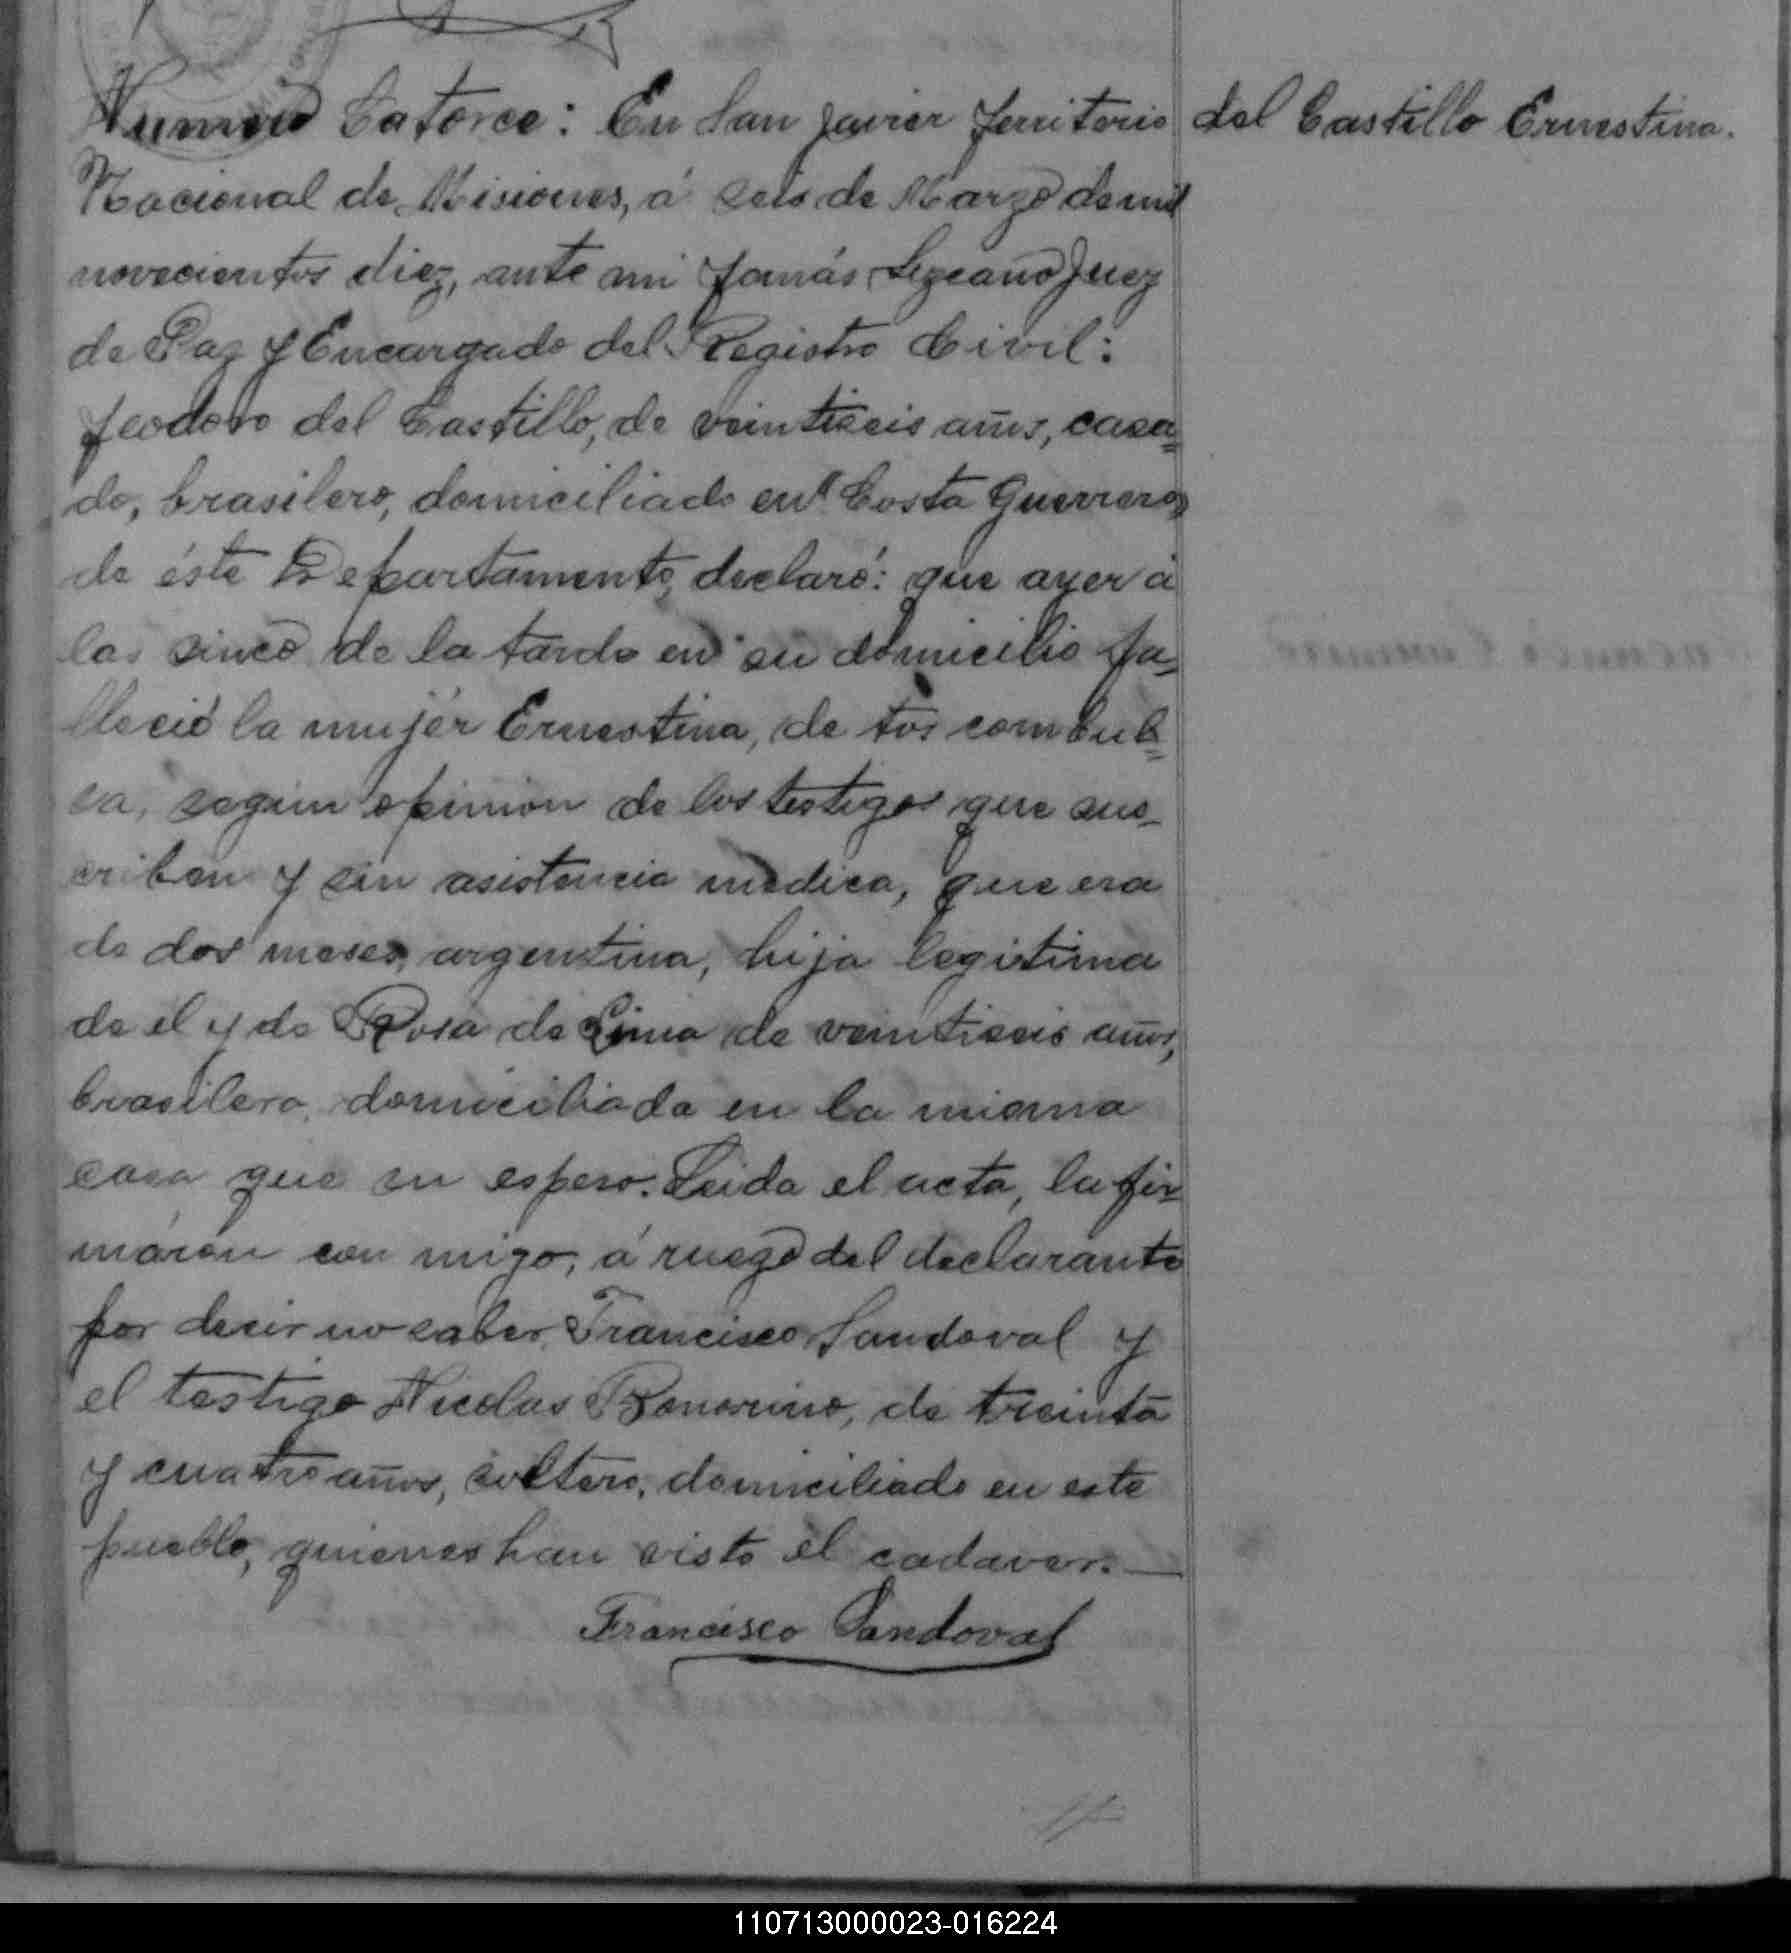 Numero Catorce: En San Javier Territorio
del Castillo Ernestina.
Nacional de Misiones, á seis de Marzo de mil
novecientos diez, ante mi Tomás Lezcano Juez
de Paz y Encargado del Registro Civil:
Teodoro del Castillo, de veintiseis años, casa=
do, brasilero, domiciliado en Costa Guerrero,
de éste Departamento, declaró: que ayer á
las sinco de la tarde en su domicilio fa=
lleció la mujér Ernestina, de tos combul=
sa, segun opinion de los testigos que sus-
criben y sin asistencia medica, que era
de dos meses, argentina, hija legitima
de el y de Rosa de Lima de veintiseis años,
brasilera, domiciliada en la misma
casa que su esposo. Leida el acta, la fir=
máron con migo, á ruego del declarante
por decir no saber, Francisco Sandoval y
el testigo Nicolas Bonorino, de treinta
y cuatro años, soltero, domiciliado en este
pueblo, quienes han visto el cadaver.—
Francisco Sandoval
110713000023-016224